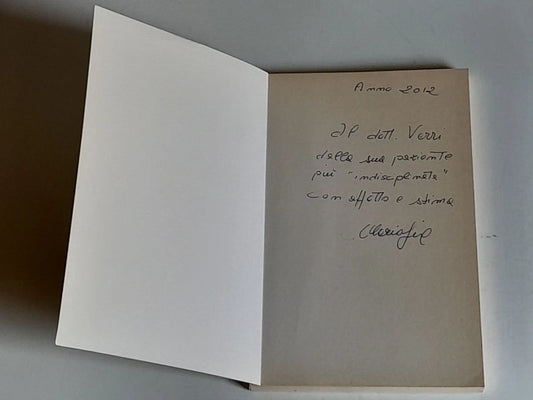 Anno 2012
Al dott. Verri
dalla sua paziente
più "indisciplinata"
con affetto e stima